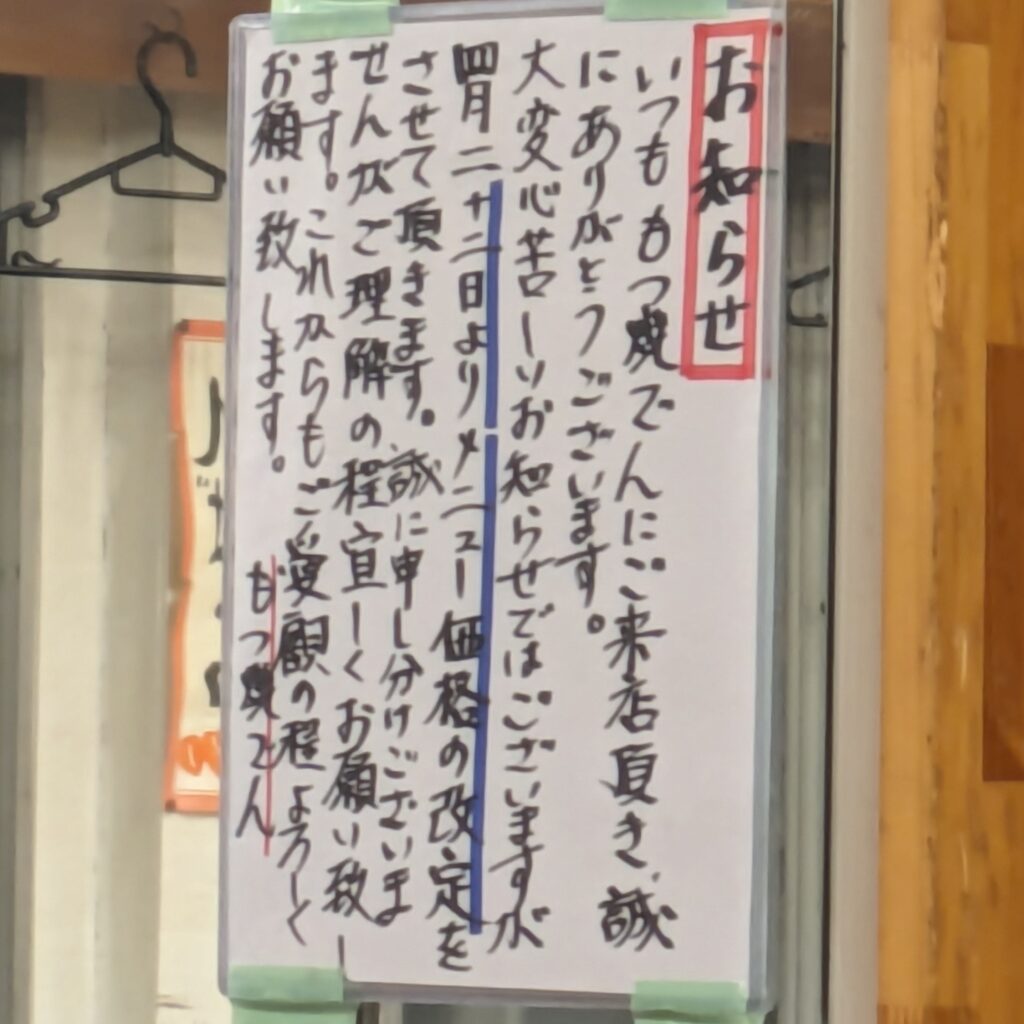 お知らせ
いつももつ焼でんにご来店頂き、誠
にありがとうございます。
大変心苦しいお知らせではございますが
四月二十二日よりメニュー価格の改定を
させて頂きます。誠に申し分けございま
せんがご理解の程宜しくお願い致し
ます。これからもご愛顧の程よろしく
お願い致します。
もつ焼でん